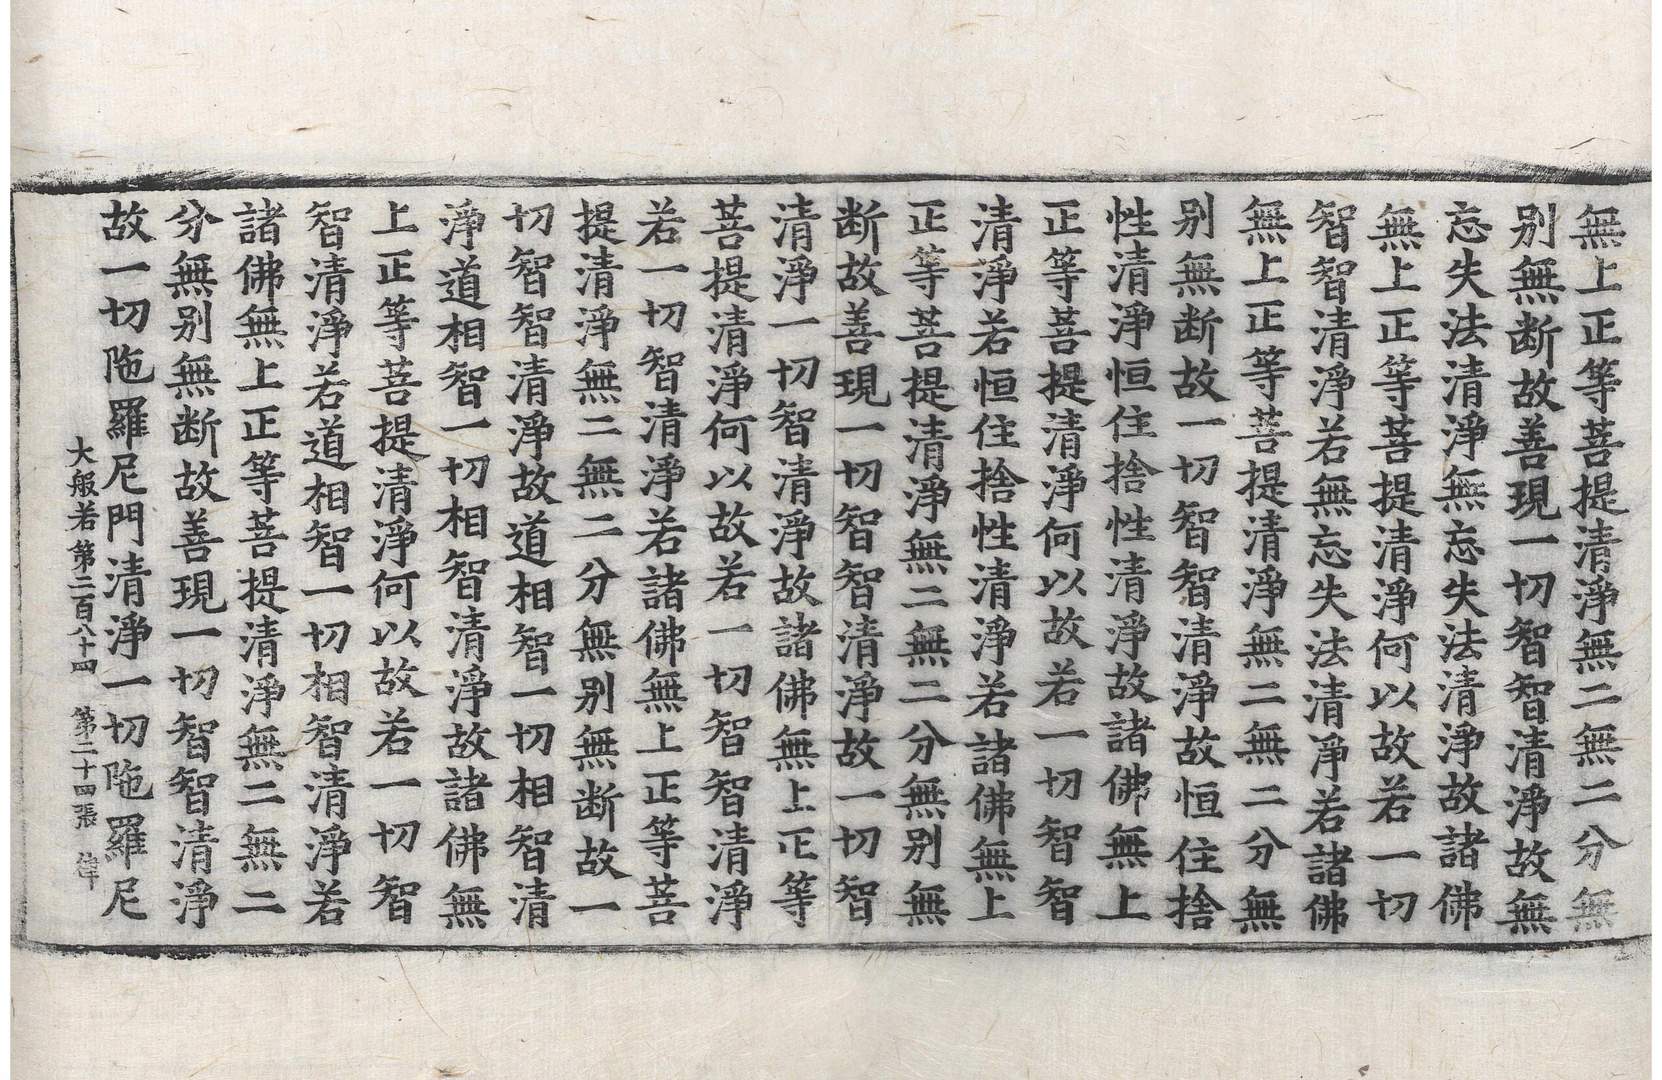 無上正等菩提清淨無二無二分無
別無断故善現一切智智清淨故無
忘失法清淨無忘失法清淨故諸佛
無上正等菩提清淨何以故若一切
智智清淨若無忘失法清淨若諸佛
無上正等菩提清淨無二無二分無
別無断故一切智智清淨故恒住捨
性清淨恒住捨性清淨故諸佛無上
正等菩提清淨何以故若一切智智
清淨若恒住捨性清淨若諸佛無上
正等菩提清淨無二無二分無別無
断故善現一切智智清淨故一切智
清淨一切智清淨故諸佛無上正等
菩提清淨何以故若一切智智清淨
若一切智清淨若諸佛無上正等菩
提清淨無二無二分無別無断故一
切智智清淨故道相智一切相智清
淨道相智一切相智清淨故諸佛無
上正等菩提清淨何以故若一切智
智清淨若道相智一切相智清淨若
諸佛無上正等菩提清淨無二無二
分無別無断故善現一切智智清淨
故一切陁羅尼門清淨一切陁羅尼
大般若第二百八十四 第二十四張